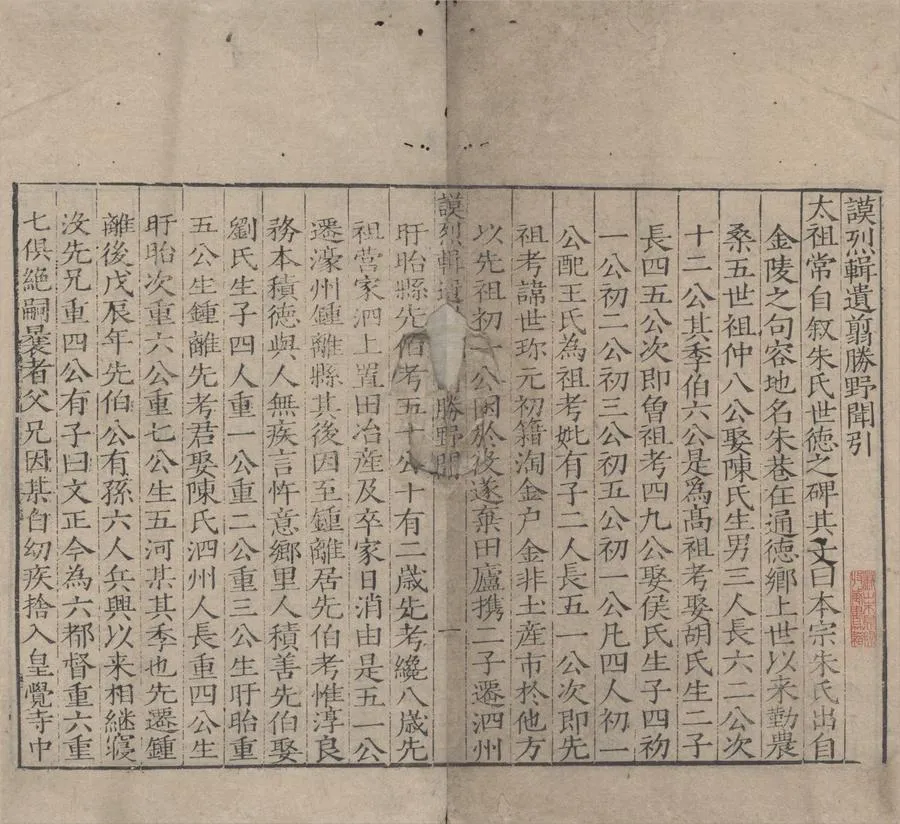 謨烈輯遺翦勝野聞引
太祖常自叙朱氏世徳之碑其文曰本宗朱氏出自
金陵之句容地名朱巷在通德鄉上世以来勤農
桑五世祖仲八公娶陳氏生男三人長六二公次
十二公其季伯六公是爲髙祖考娶胡氏生二子
長四五公次即曽祖考四九公娶侯氏生子四初
一公初二公初三公初五公初一公凡四人初一
公配王氏為祖考妣有子二人長五一公次即先
祖考諱世珎元初籍淘金户金非土産市於他方
以先祖初一公困於役遂棄田廬携二子遷泗州
謨烈輯遺 勝野聞 一
盱眙縣先伯考五十公十有二歲先考纔八歲先
祖营家泗上置田冶産及卒家日消由是五一公
遷濠州鍾離縣其後因至鍾離居先伯考惟淳良
務本積德與人無疾言忤意鄉里人積善先伯娶
劉氏生子四人重一公重二公重三公生盱眙重
五公生鍾離先考君娶陳氏泗州人長重四公生
盱眙次重六公重七公生五河某其季也先遷鍾
離後戊辰年先伯公有孫六人兵興以来相継寝
沒先兄重四公有子曰文正今為六都督重六重
七俱絶嗣曩者父兄因某自幼疾捨入皇覺寺中